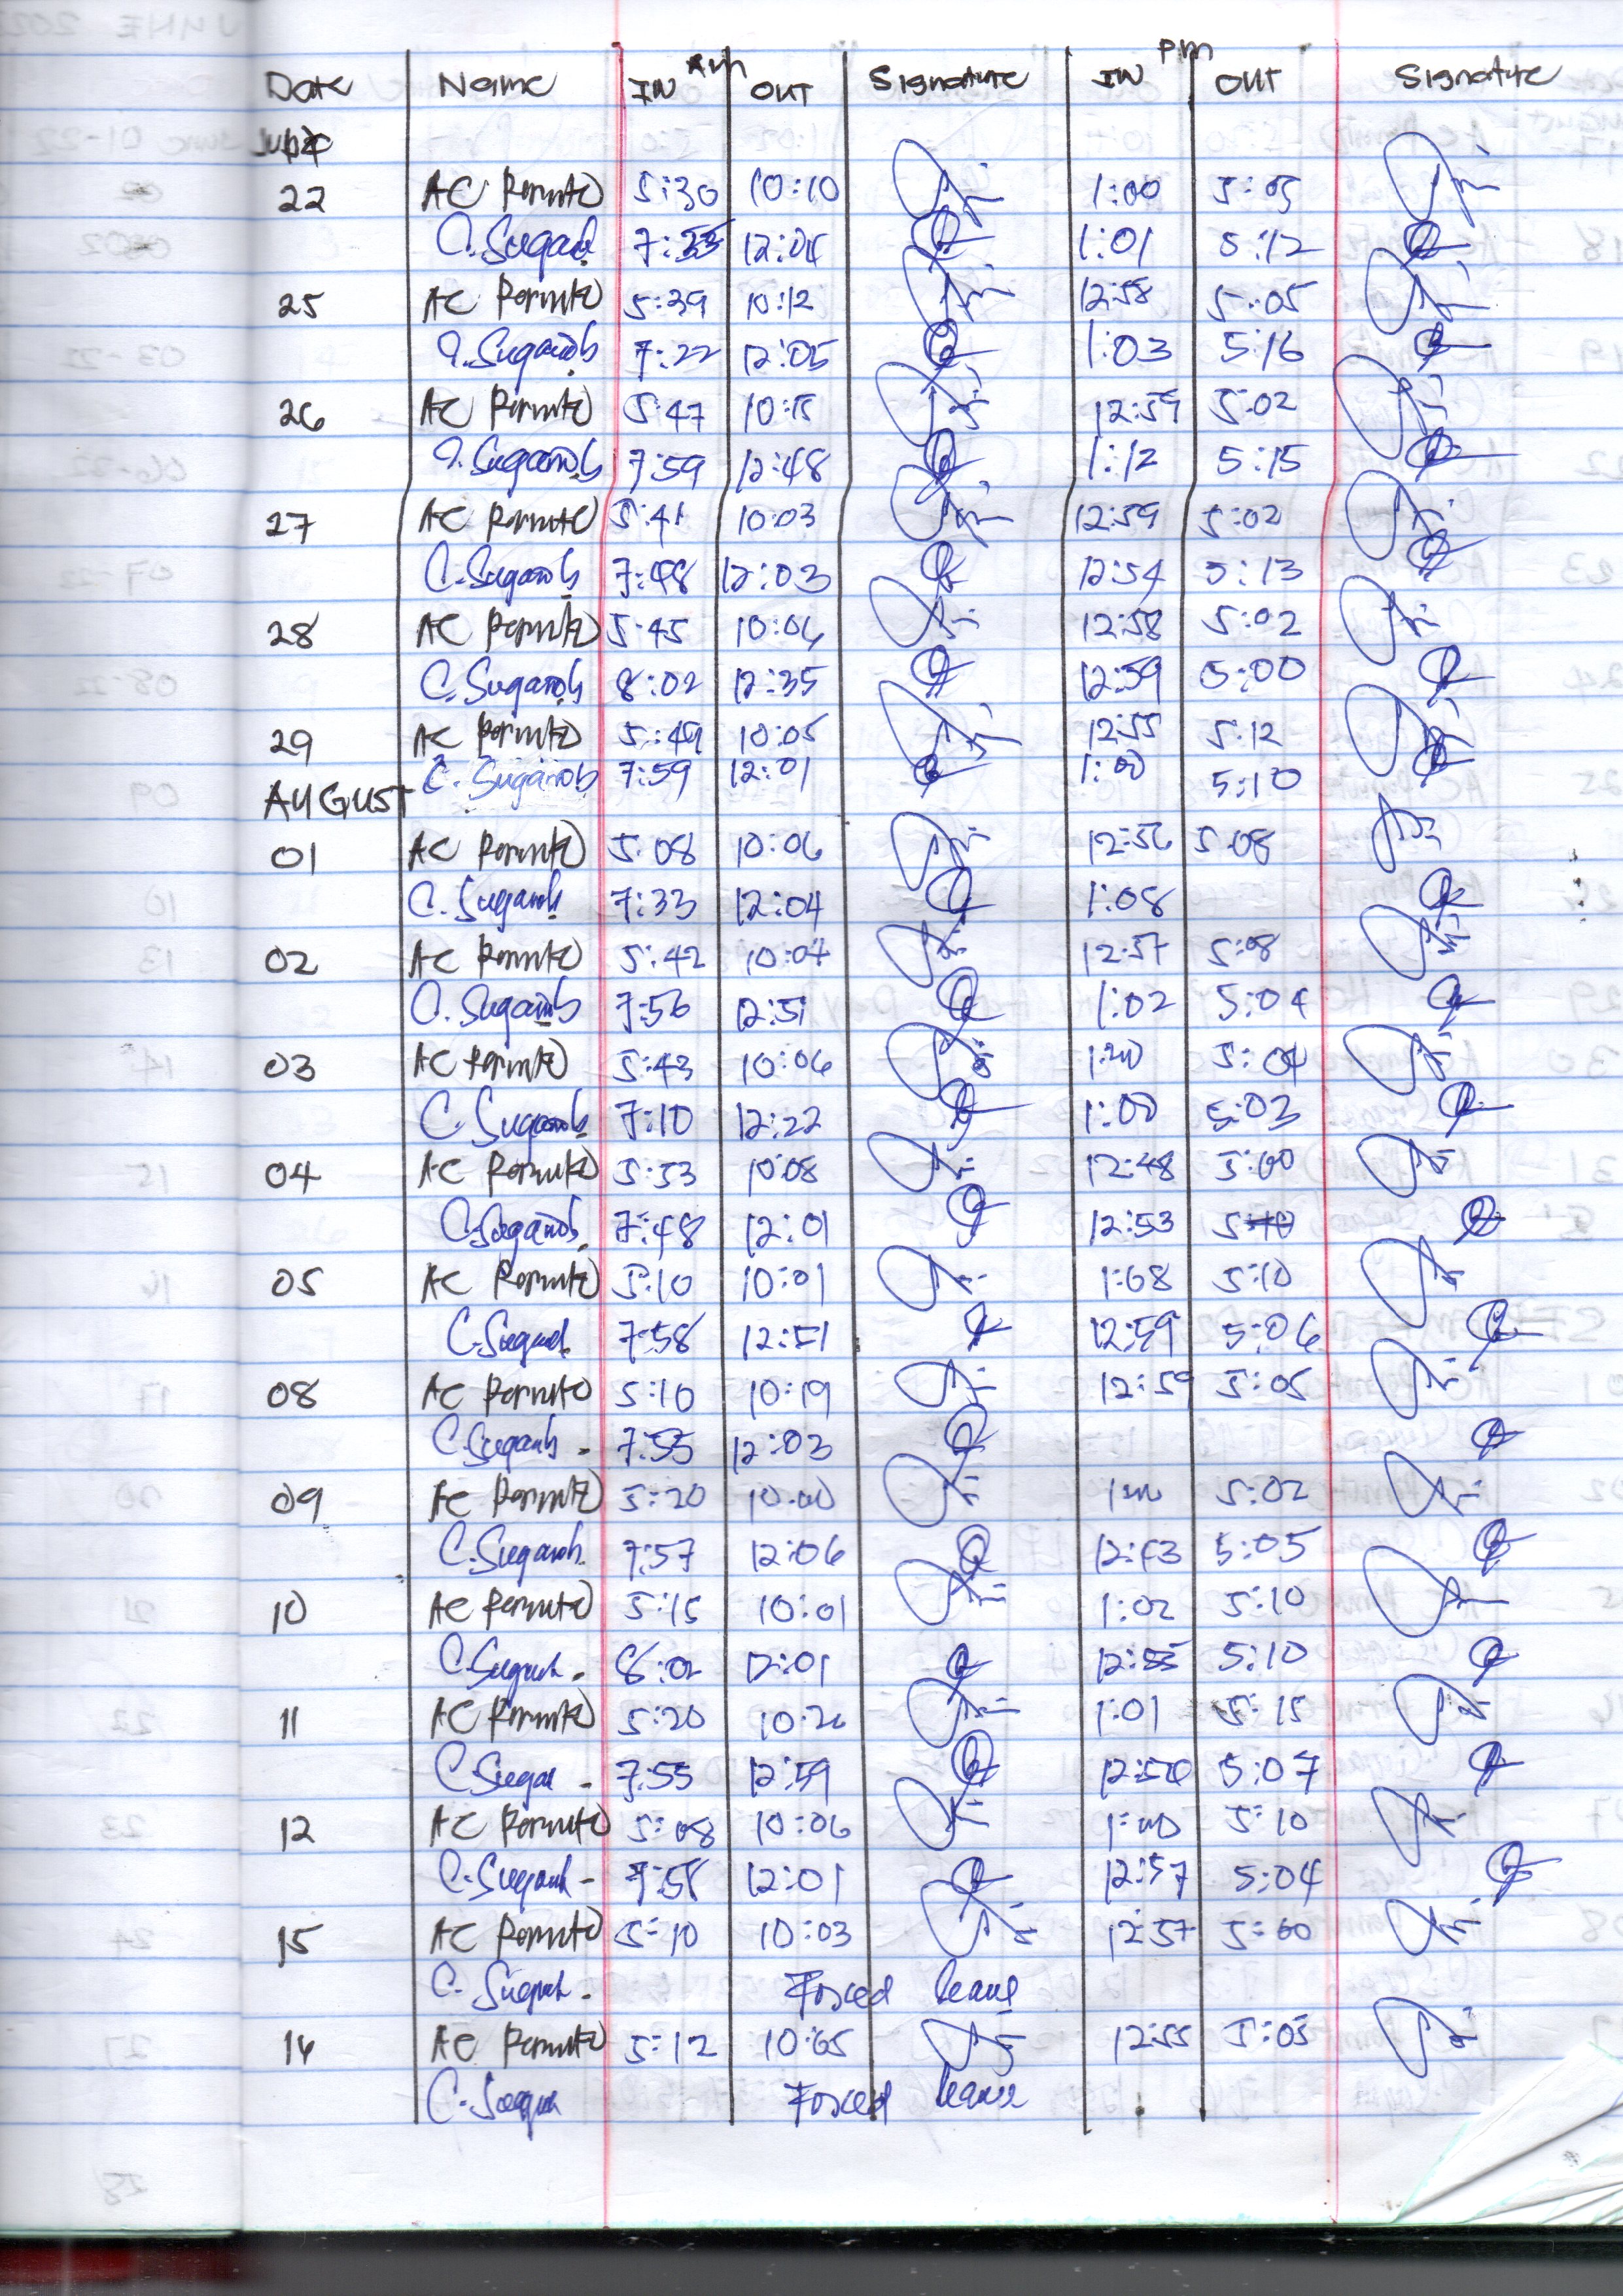 Am Pm
Date Name IN OUT Signature IN OUT Signature
July
22 AC Pormento 5:30 10:10 1:00 5:05
C. Suganob 7:33 12:04 1:01 5:12
25 AC Pormento 5:39 10:12 12:58 5:05
C. Suganob 7:22 12:05 1:03 5:16
26 AC Pormento 5:47 10:15 12:59 5:02
C. Suganob 7:59 12:48 1:12 5:15
27 AC Pormento 5:41 10:03 12:59 5:02
C. Suganob 7:48 12:03 12:54 5:13
28 AC Pormento 5:45 10:06 12:58 5:02
C. Suganob 8:02 12:35 12:59 5:00
29 AC Pormento 5:49 10:05 12:55 5:12
C. Suganob 7:59 12:01 1:00 5:10
AUGUST
01 AC Pormento 5:08 10:06 12:56 5:08
C. Suganob 7:33 12:04 1:08
02 AC Pormento 5:42 10:04 12:57 5:08
C. Suganob 7:56 12:51 1:02 5:04
03 AC Pormento 5:43 10:06 1:00 5:04
C. Suganob 7:10 12:22 1:00 5:03
04 AC Pormento 5:53 10:08 12:48 5:00
C. Suganob 7:48 12:01 12:53
05 AC Pormento 5:10 10:01 1:08 5:10
C. Suganob 7:58 12:51 12:59 5:06
08 AC Pormento 5:10 10:19 12:59 5:05
C. Suganob 7:55 12:03
09 AC Pormento 5:20 10:00 1:00 5:02
C. Suganob 7:57 12:06 12:53 5:05
10 AC Pormento 5:15 10:01 1:02 5:10
C. Suganob 8:02 12:01 12:55 5:10
11 AC Pormento 5:20 10:20 1:01 5:15
C. Suganob 7:55 12:59 12:50 5:07
12 AC Pormento 5:08 10:06 1:00 5:10
C. Suganob 7:58 12:01 12:57 5:04
15 AC Pormento 5:10 10:03 12:57 5:00
C. Suganob Forced leave
16 AC Pormento 5:12 10:05 12:55 5:05
C. Suganob Forced leave